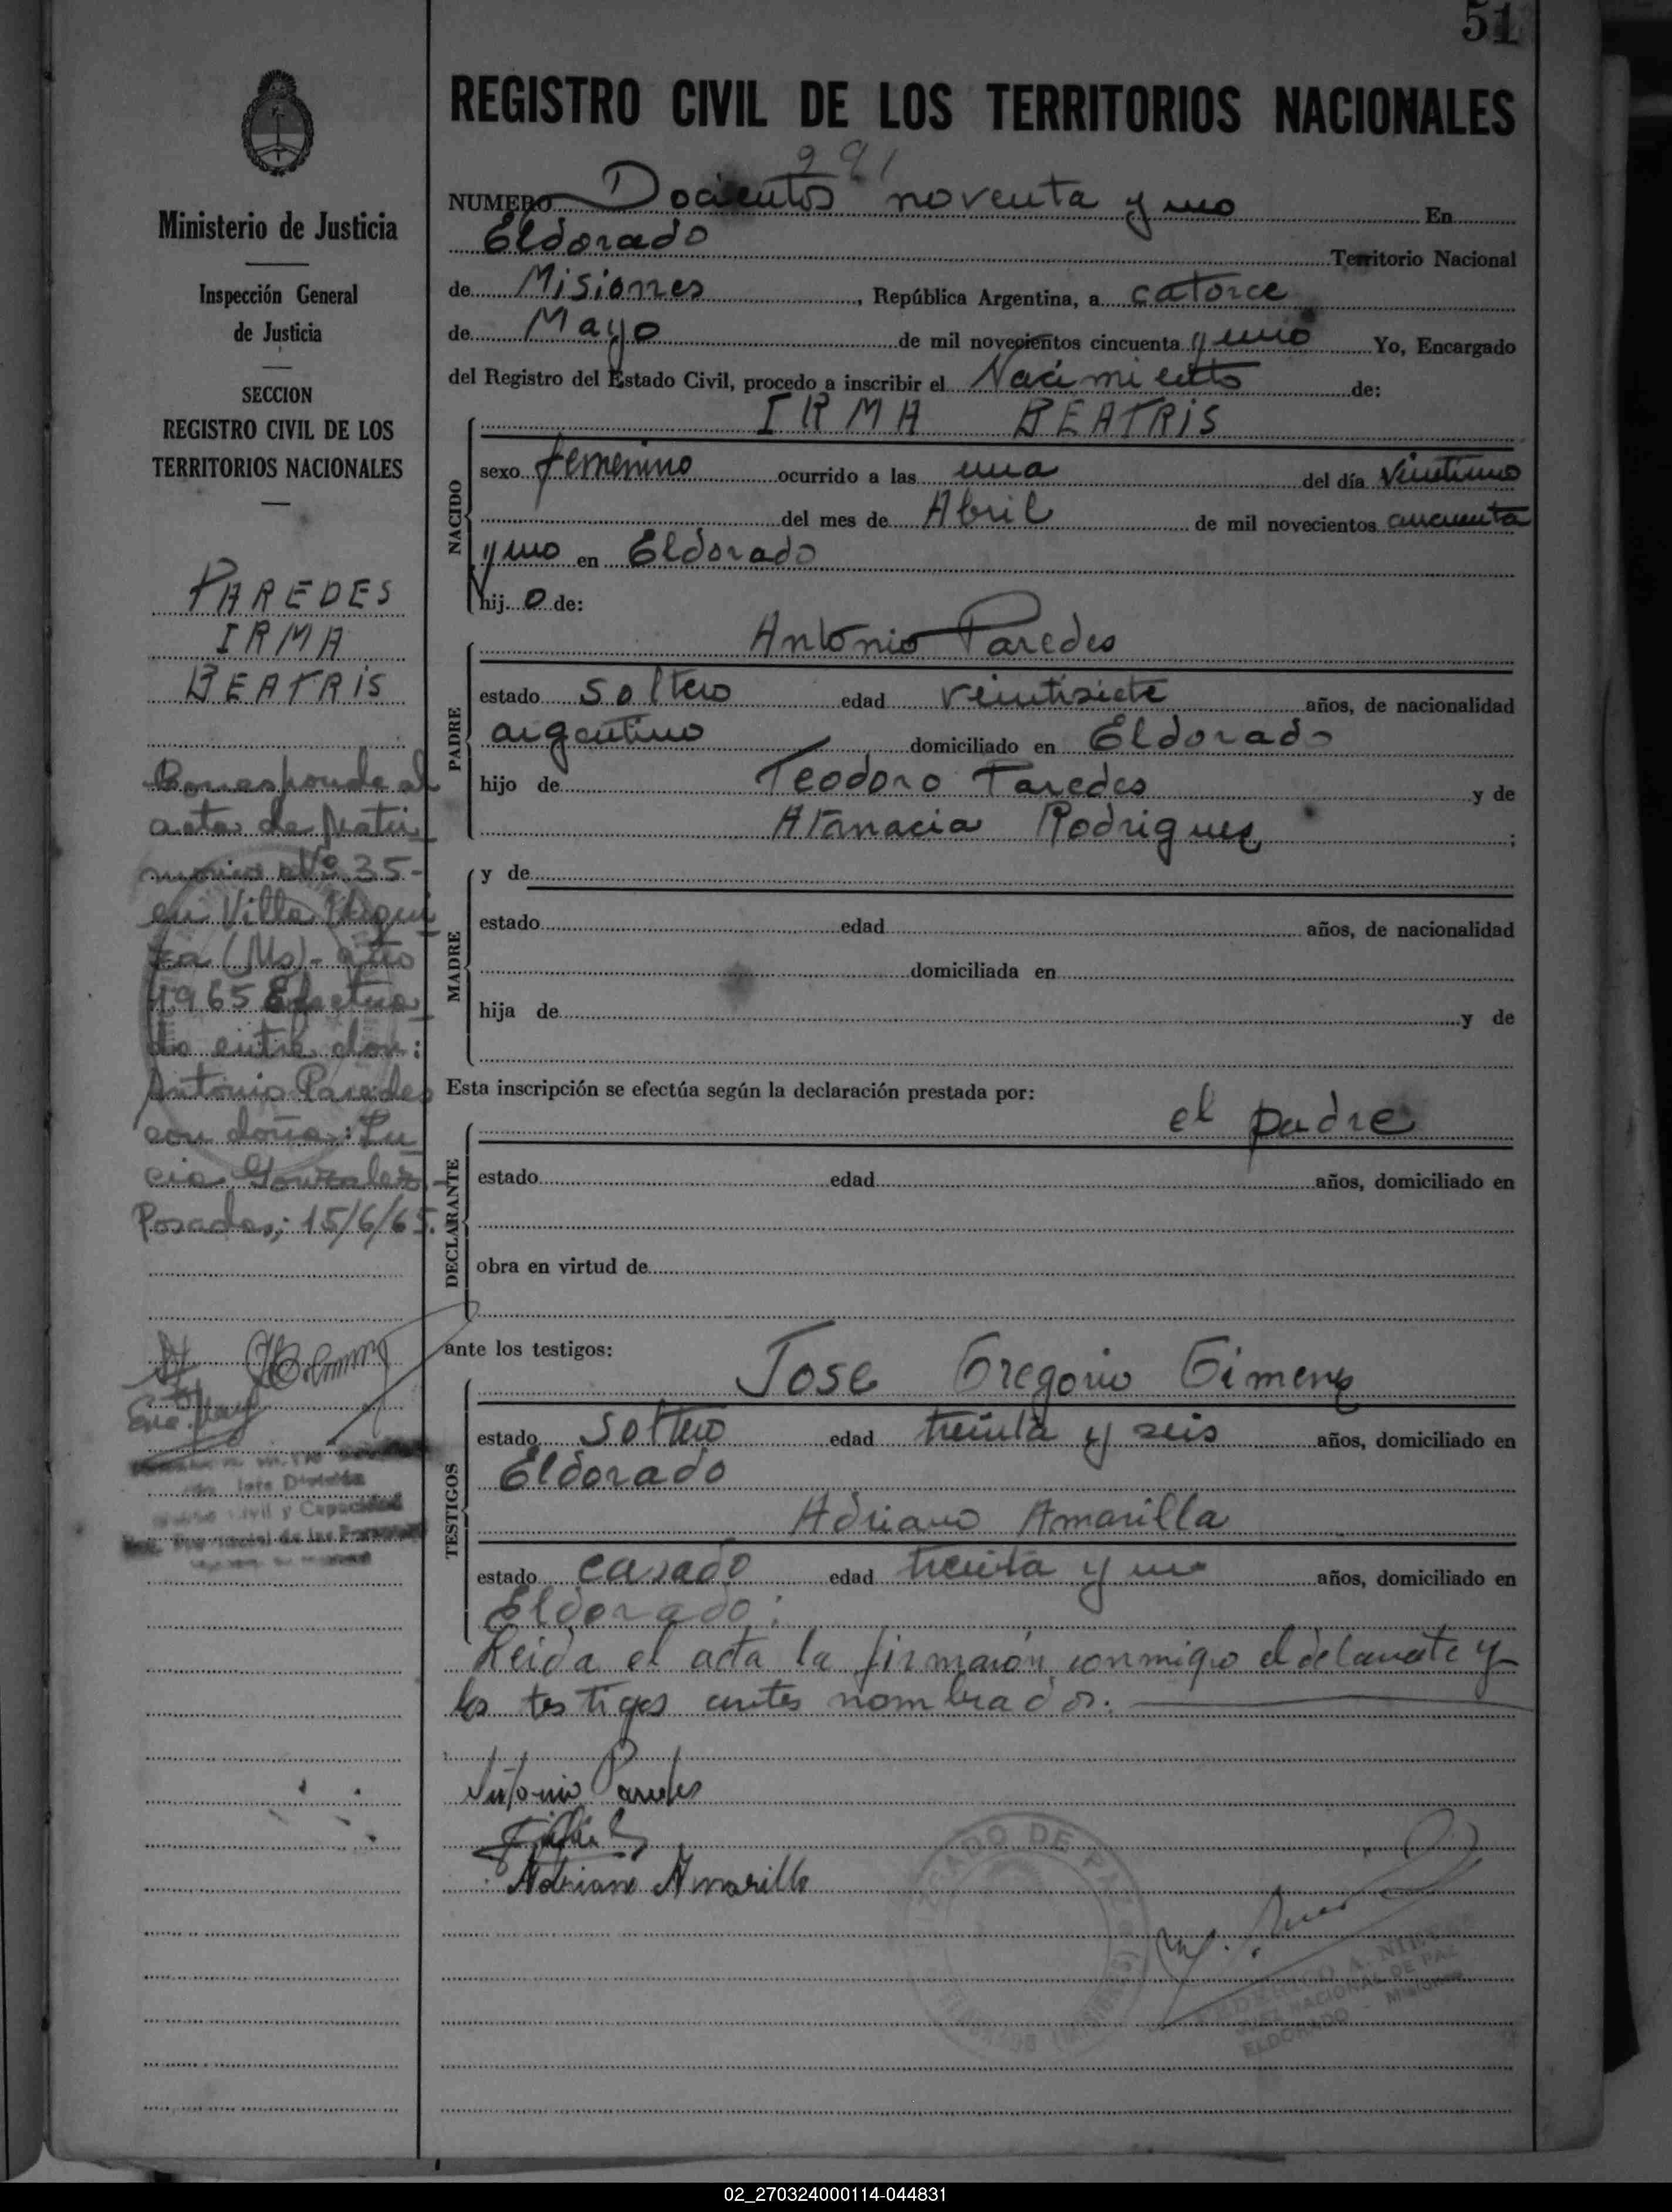 51
REGISTRO CIVIL DE LOS TERRITORIOS NACIONALES
291
NUMERO Docientos noventa y uno En
Eldorado Territorio Nacional
de Misiones, República Argentina, a catorce
de Mayo de mil novecientos cincuenta y uno Yo, Encargado
del Registro del Estado Civil, procedo a inscribir el Nacimiento de:
Ministerio de Justicia
Inspección General
de Justicia
SECCION
REGISTRO CIVIL DE LOS
TERRITORIOS NACIONALES
PAREDES
IRMA
BEATRIS
Corresponde al
acta de Matri
monio Nº 35-
en Villa
(Ms)- año
1965 Efectua
do entre don:
Antonio Paredes
con doña: Lu
cia Gonzalez-
Posadas; 15/6/65.
NACIDO
IRMA BEATRIS
sexo femenino ocurrido a las una del día Veintiuno
del mes de Abril de mil novecientos cincuenta
y uno en Eldorado
hij o de:
PADRE
Antonio Paredes
estado soltero edad veintisiete años, de nacionalidad
argentino domiciliado en Eldorado
hijo de Teodoro Paredes y de
Atanacia Rodriguez;
MADRE
y de
estado edad años, de nacionalidad
domiciliada en
hija de y de
Esta inscripción se efectúa según la declaración prestada por:
DECLARANTE
el padre
estado edad años, domiciliado en
obra en virtud de
ante los testigos:
TESTIGOS
Jose Gregorio Gimenez
estado soltero edad treinta y seis años, domiciliado en
Eldorado
Adriano Amarilla
estado casado edad treinta y uno años, domiciliado en
Eldorado:
Leida el acta la firmaron conmigo el declarante y
los testigos antes nombrados.
Antonio Paredes
Adriano Amarilla
JUZGADO DE PAZ
ELDORADO (MISIONES)
FEDERICO A.
JUEZ NACIONAL DE PAZ
ELDORADO - MISIONES
02_270324000114-044831